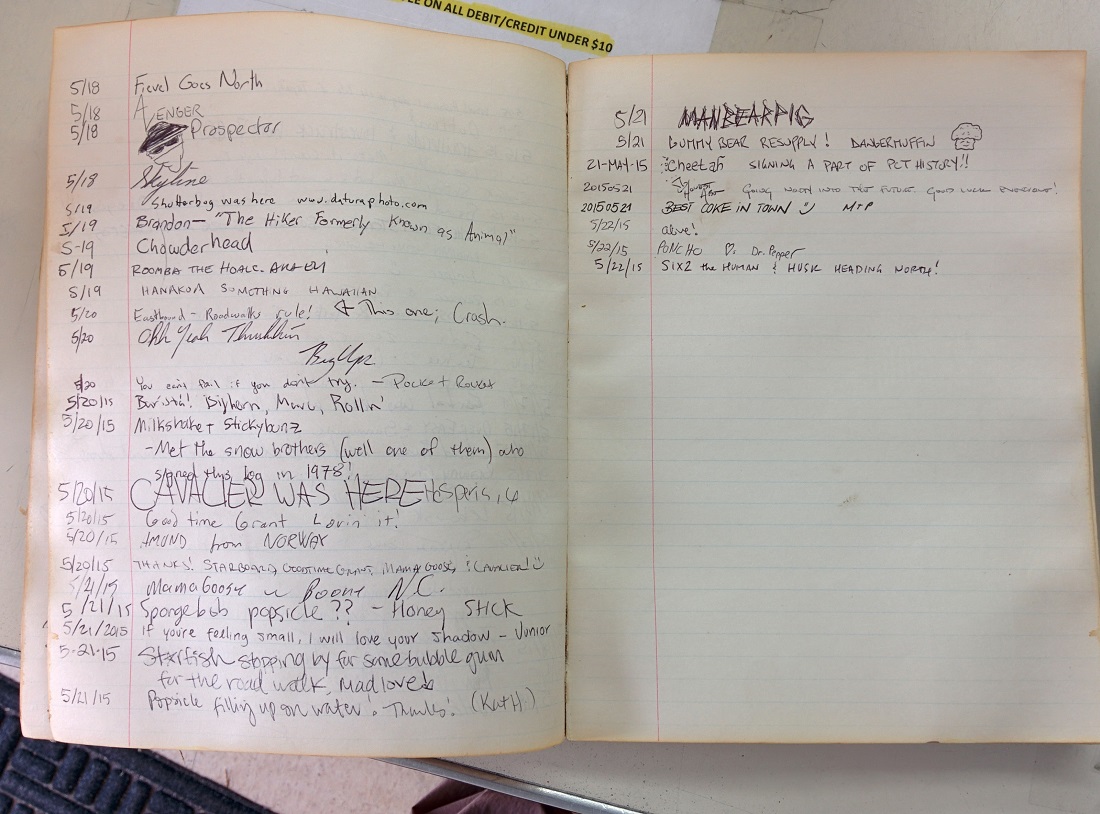 LE ON ALL DEBIT/CREDIT UNDER $10
5/18 Fievel Goes North
5/18 AVENGER
5/18 Prospector
5/18 Skyline
5/19 Shutterbug was here www.daturaphoto.com
5/19 Brandon— "The Hiker Formerly Known as Animal"
5-19 Chowderhead
5/19 ROOMBA THE
5/19 HANAKOA SOMETHING HAWAIIAN
5/20 Eastbound - Roadwalks rule! This one; Crash.
5/20 Ohh Yeah
Big Upz
5/20 You can't fail if you don't try. - Pocket Rocket
5/20/15 Bighorn, Marc, Rollin'
5/20/15 Milkshake + Stickybunz
- Met the snow brothers (well one of them) who
signed this log in 1978!
5/20/15 CAVALIER WAS HERE
5/20/15 Good time Grant Lovin' it!
5/20/15 from NORWAY
5/20/15 THANKS! STARBOARD, GOODTIME GRANT, MAMA GOOSE, CAVALIER!
5/21/15 Mama Goose Boone N.C.
5/21/15 Spongebob popsicle?? - Honey Stick
5/21/2015 If you're feeling small, I will love your shadow - Junior
5-21-15 Starfish stopping by for some bubble gum
for the road walk, mad love
5/21/15 Popsicle filling up on water! Thanks! (Kat H)
5/21 MANBEARPIG
5/21 GUMMY BEAR RESUPPLY! DANGERMUFFIN
21-MAY-15 Cheetah SIGNING A PART OF PCT HISTORY!!
20150521 GOING NORTH INTO THE FUTURE. GOOD LUCK EVERYONE!
20150521 BEST COKE IN TOWN MTP
5/22/15 alive!
5/22/15 PONCHO ♡. Dr. Pepper
5/22/15 SIX2 the HUMAN & HUSK HEADING NORTH!